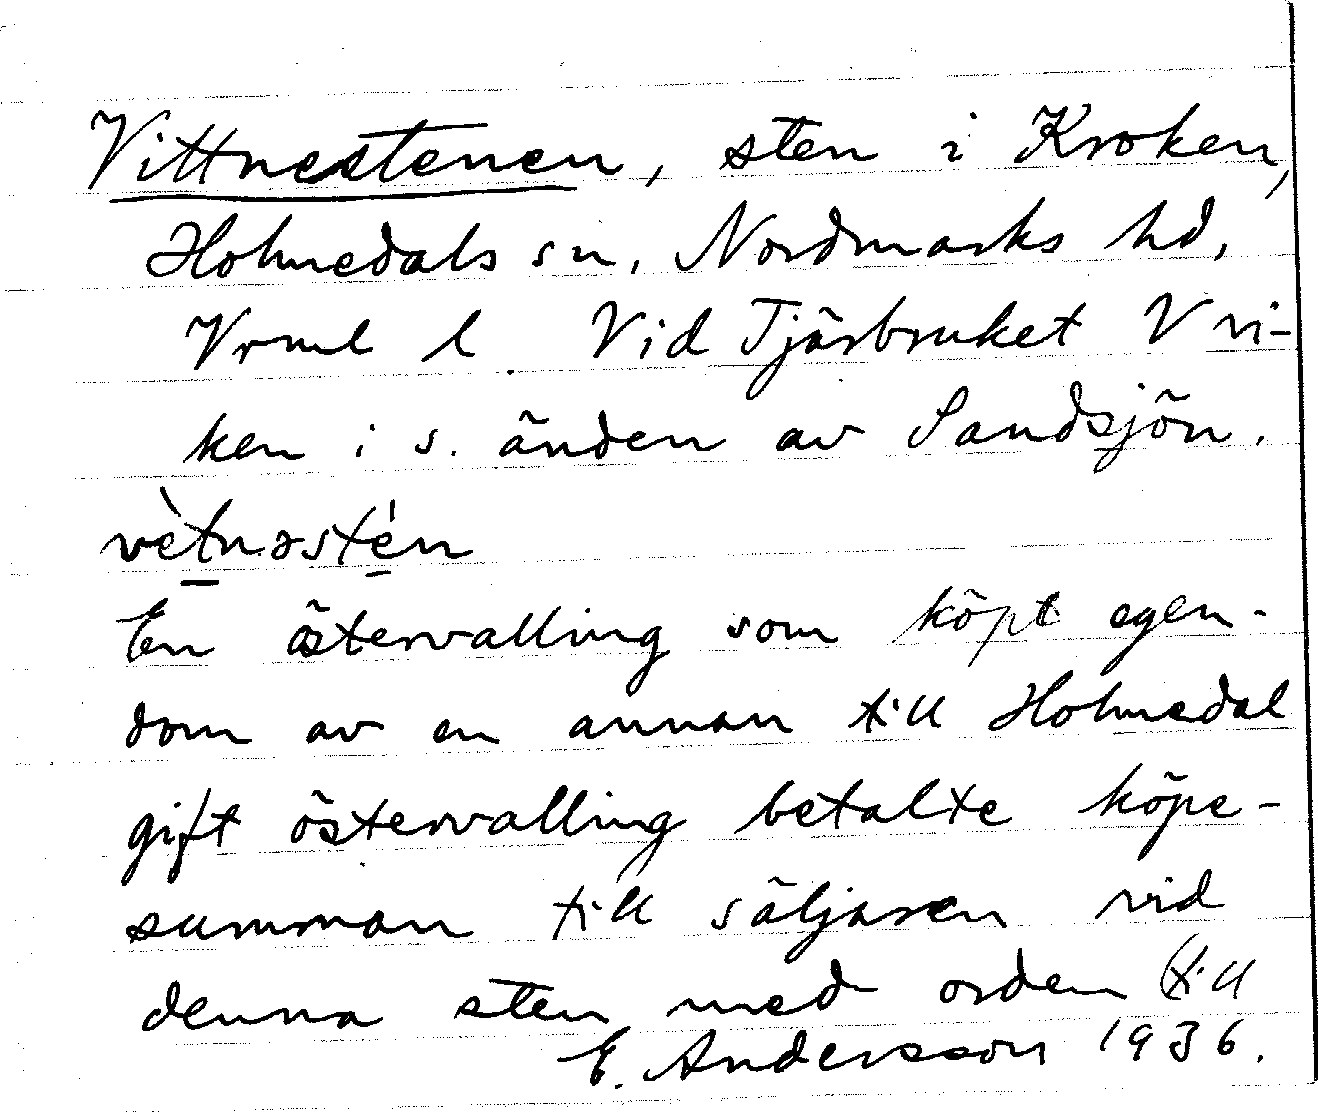 Vittnestenen, sten i Kroken,
Holmedals sn, Nordmarks hd,
Vrml l. Vid Tjärbruket V vi-
ken i s. änden av Sandsjön.
vètnəsté́n
En östervalling som köpt egen-
dom av en annan till Holmedal
gift östervalling betalte köpe-
summan till säljaren vid
denna sten med orden (till
E. Andersson 1936.